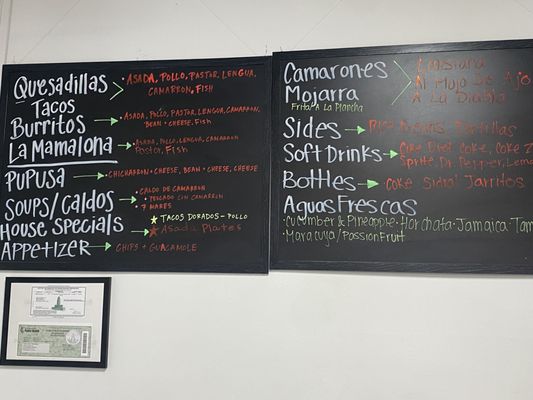 Quesadillas
Tacos
Asada, Pollo, Pastor, Lengua,
Camarron, Fish
Burritos
Asada, Pollo, Pastor, Lengua, Camarron,
Bean + Cheese, Fish
La Mamalona
Asada, Pollo, Lengua, Camarron
Pastor, Fish
Pupusa
Chicharron + Cheese, Bean + Cheese, Cheese
Soups/Caldos
Caldo de Camarron
Pescado con Camarron
7 Mares
House Specials
Tacos Dorados - Pollo
Asada Plates
Appetizer
Chips + Guacamole
Camarones
Mojarra
Frita A La Plancha
Al Mojo De Ajo
A La Diabla
Sides
Tortillas
Soft Drinks
Coke, Diet Coke, Coke Z
Sprite, Dr. Pepper, Lemo
Bottles
Coke Sidral Jarritos
Aguas Frescas
Cucumber & Pineapple · Horchata · Jamaica Tam
Maracuya/Passion Fruit